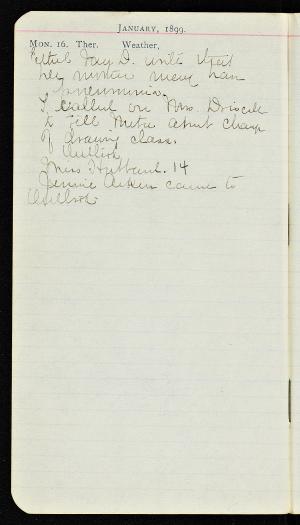 JANUARY, 1899.
MON. 16. Ther. Weather,
Ethel Fay D. writes that
her mother may have
pneumonia.
I called on Mrs. Driscoll
to tell about change
of drawing class.
Miss Hubbard. 14
Jennie Aiken came to